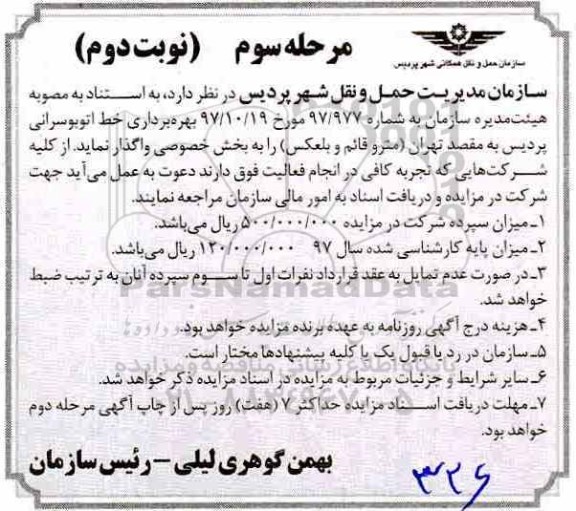 سازمان حمل و نقل همگانی شهر پردیس
مرحله سوم (نوبت دوم)
سازمان مدیریت حمل و نقل شهر پردیس در نظر دارد، به استناد به مصوبه
هیئت‌مدیره سازمان به شماره ۹۷/۹۷۷ مورخ ۹۷/۱۰/۱۹ بهره‌برداری خط اتوبوسرانی
پردیس به مقصد تهران (مترو قائم و بلعکس) را به بخش خصوصی واگذار نماید. از کلیه
شرکت‌هایی که تجربه کافی در انجام فعالیت فوق دارند دعوت به عمل می‌آید جهت
شرکت در مزایده و دریافت اسناد به امور مالی سازمان مراجعه نمایند.
۱ـ میزان سپرده شرکت در مزایده ۵۰۰/۰۰۰/۰۰۰ ریال می‌باشد.
۲ـ میزان پایه کارشناسی شده سال ۹۷ ۱۲۰/۰۰۰/۰۰۰ ریال می‌باشد.
۳ـ در صورت عدم تمایل به عقد قرارداد نفرات اول تا سوم سپرده آنان به ترتیب ضبط
خواهد شد.
۴ـ هزینه درج آگهی روزنامه به عهده برنده مزایده خواهد بود.
۵ـ سازمان در رد یا قبول یک یا کلیه پیشنهادها مختار است.
۶ـ سایر شرایط و جزئیات مربوط به مزایده در اسناد مزایده ذکر خواهد شد.
۷ـ مهلت دریافت اسناد مزایده حداکثر ۷ (هفت) روز پس از چاپ آگهی مرحله دوم
خواهد بود.
بهمن گوهری لیلی – رئیس سازمان
۳۲۶
ParsNamadData
پایگاه اطلاع رسانی مناقصه و مزایده